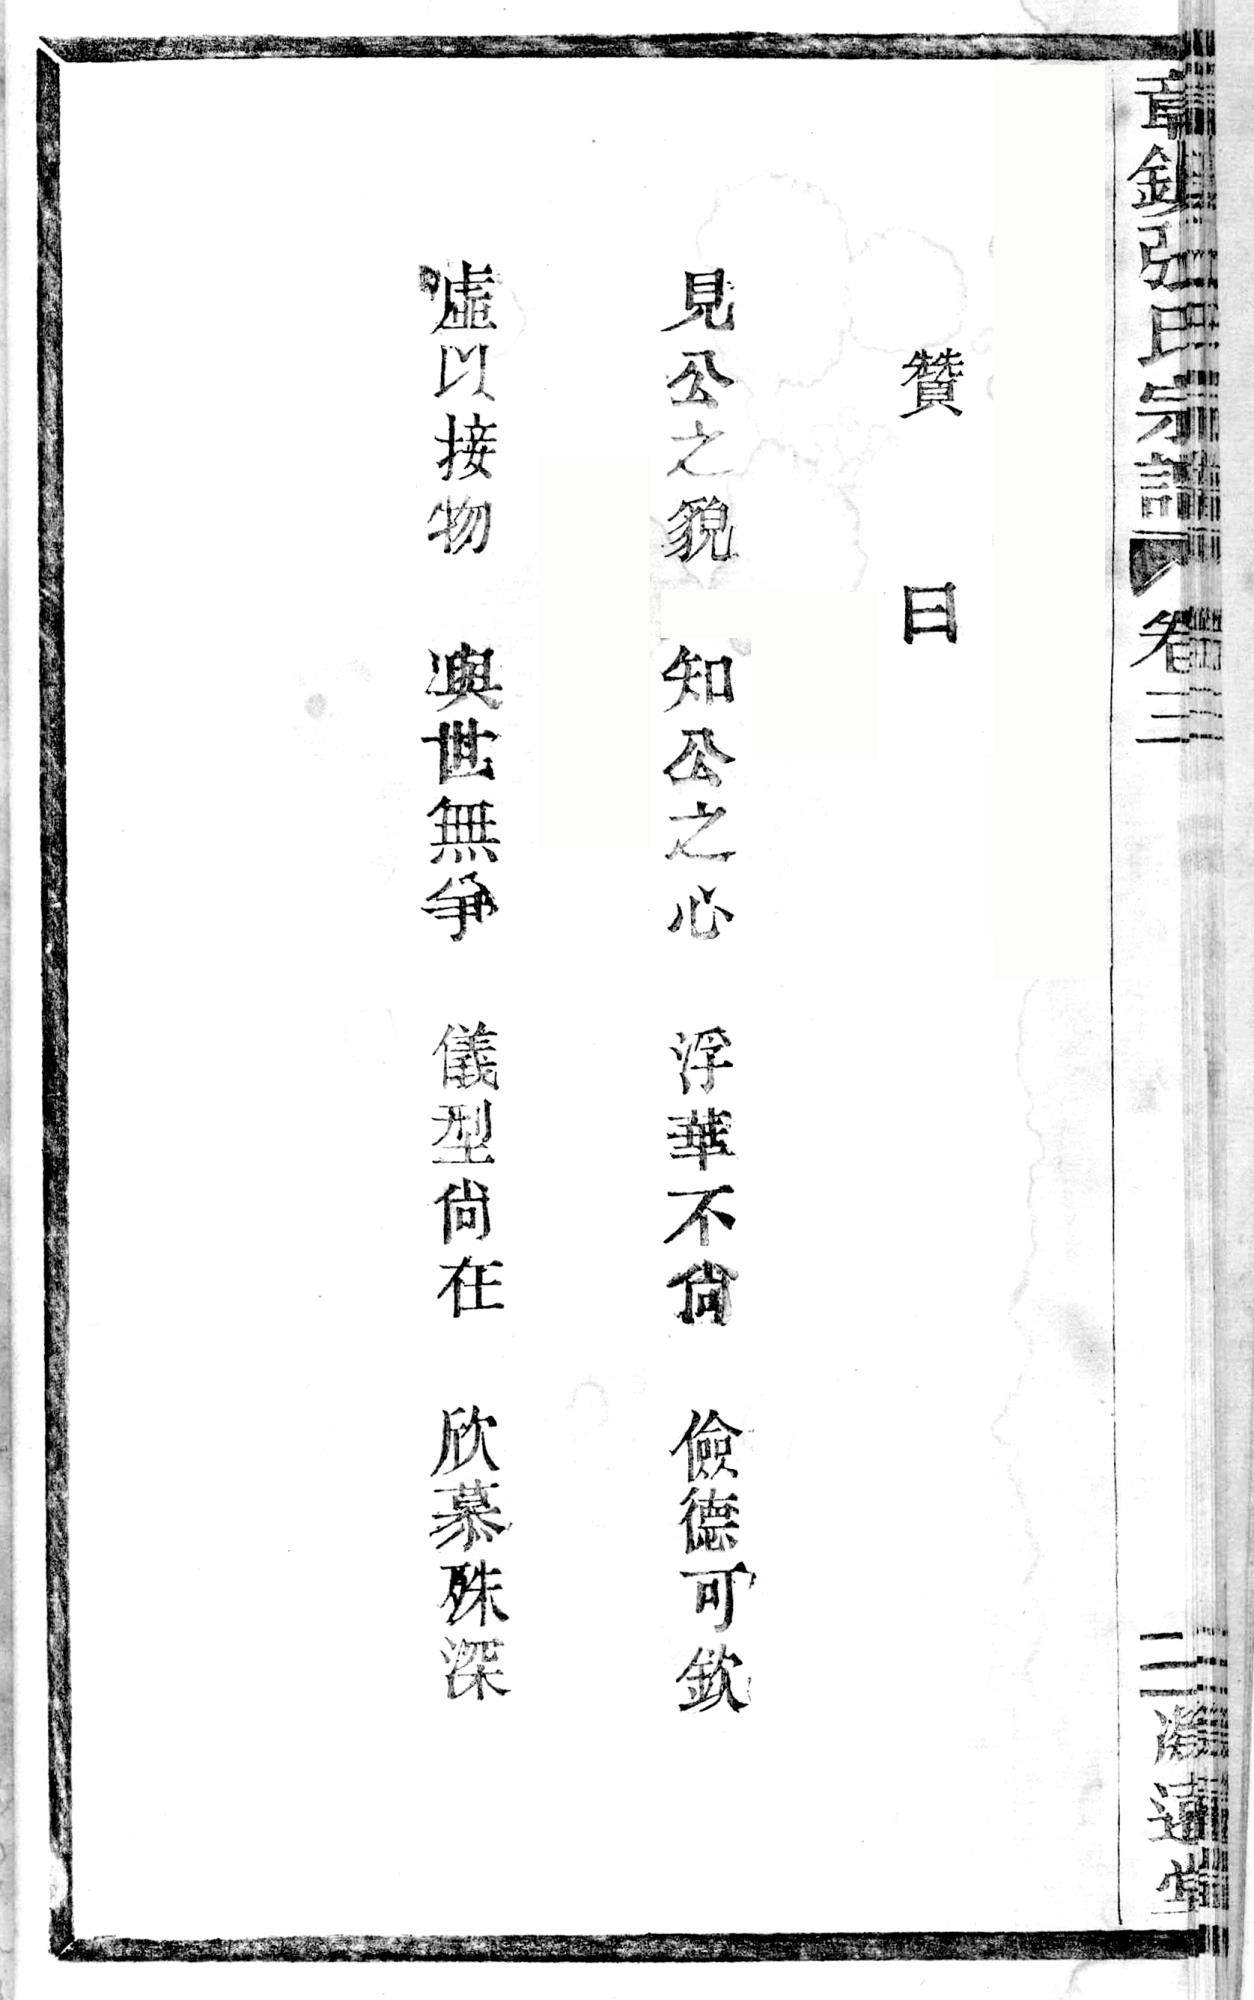 章鎮張氏宗譜 卷三
贊曰
見公之貌 知公之心 浮華不尙 儉德可欽
虛以接物 與世無爭 儀型尙在 欣慕殊深
二 遠堂